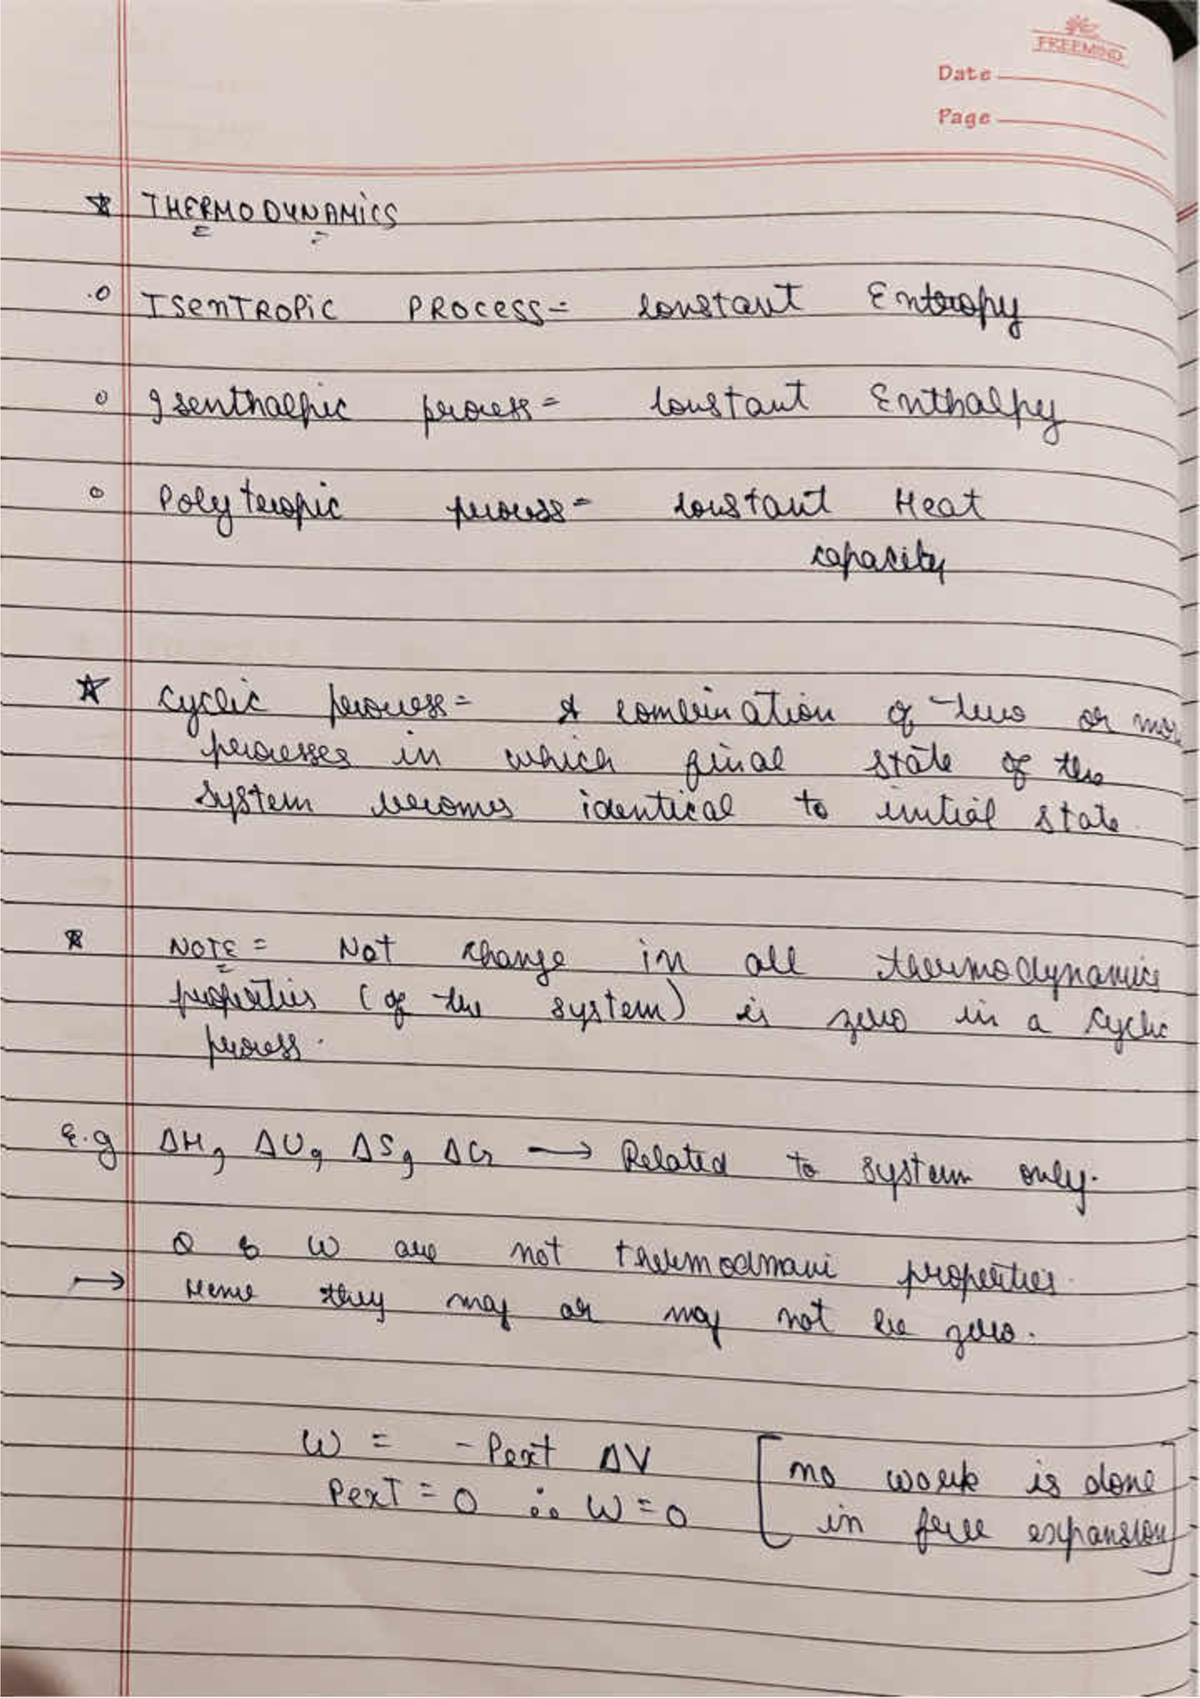 FREEMIND
Date
Page
THERMODYNAMICS
ISENTROPIC PROCESS = constant Entropy
Isenthalpic process = constant Enthalpy
Polytropic process = constant Heat
capacity
Cyclic process = A combination of two or mor
processes in which final state of the
system becomes identical to initial state.
NOTE = Net change in all thermodynamics
properties (of the system) is zero in a cyclic
process.
E.g ΔH, ΔU, ΔS, ΔG → Related to system only.
Q & W are not thermodmani properties.
→ Hence they may or may not be zero.
W = - Pext ΔV [no work is done
Pext = 0 ∴ W = 0 in free expansion]